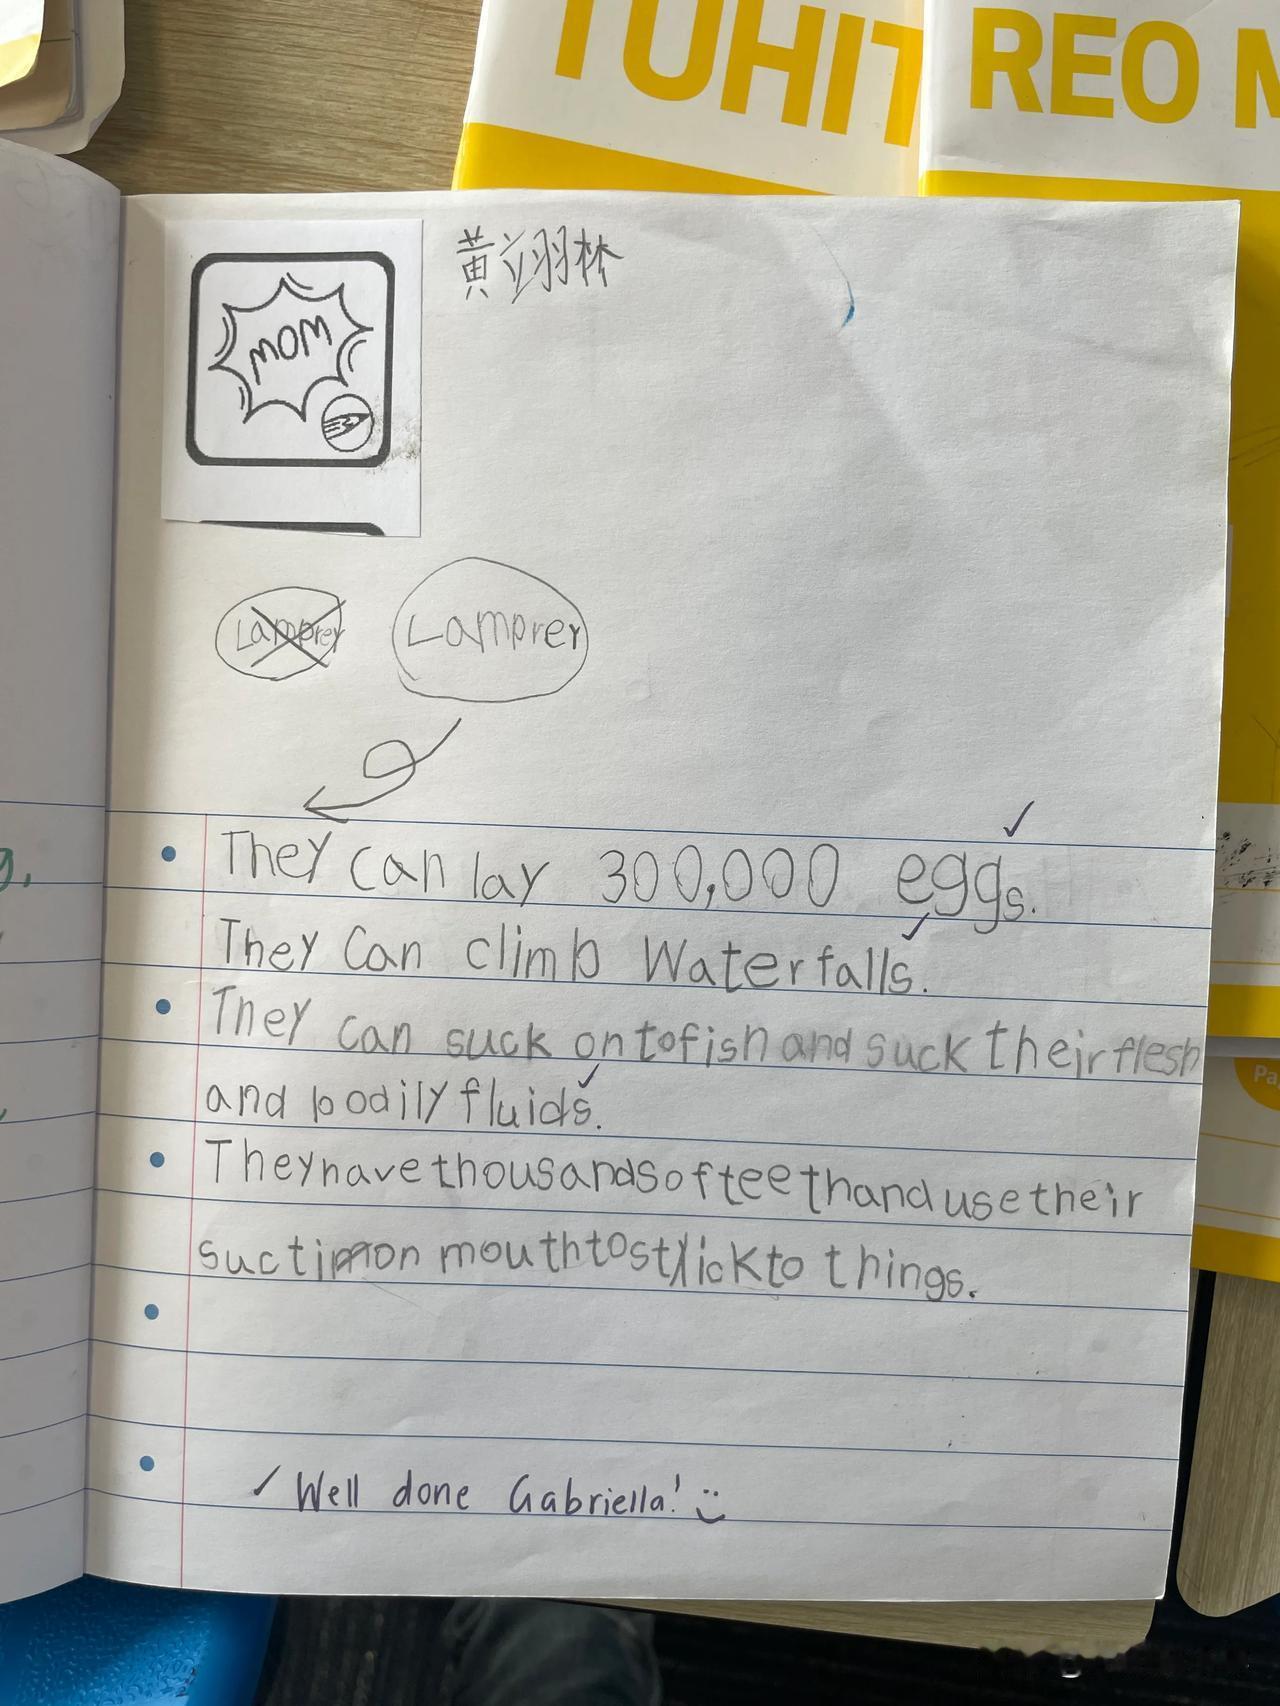 TUHIT
REO M
黄立翊林
MOM
Lamprey
Lamprey
They can lay 300,000 eggs.
They Can climb Waterfalls.
They can suck onto fish and suck their flesh
and bodily fluids.
They have thousands of teeth and use their
suction mouth to stick to things.
Well done Gabriella!
g,
Pa